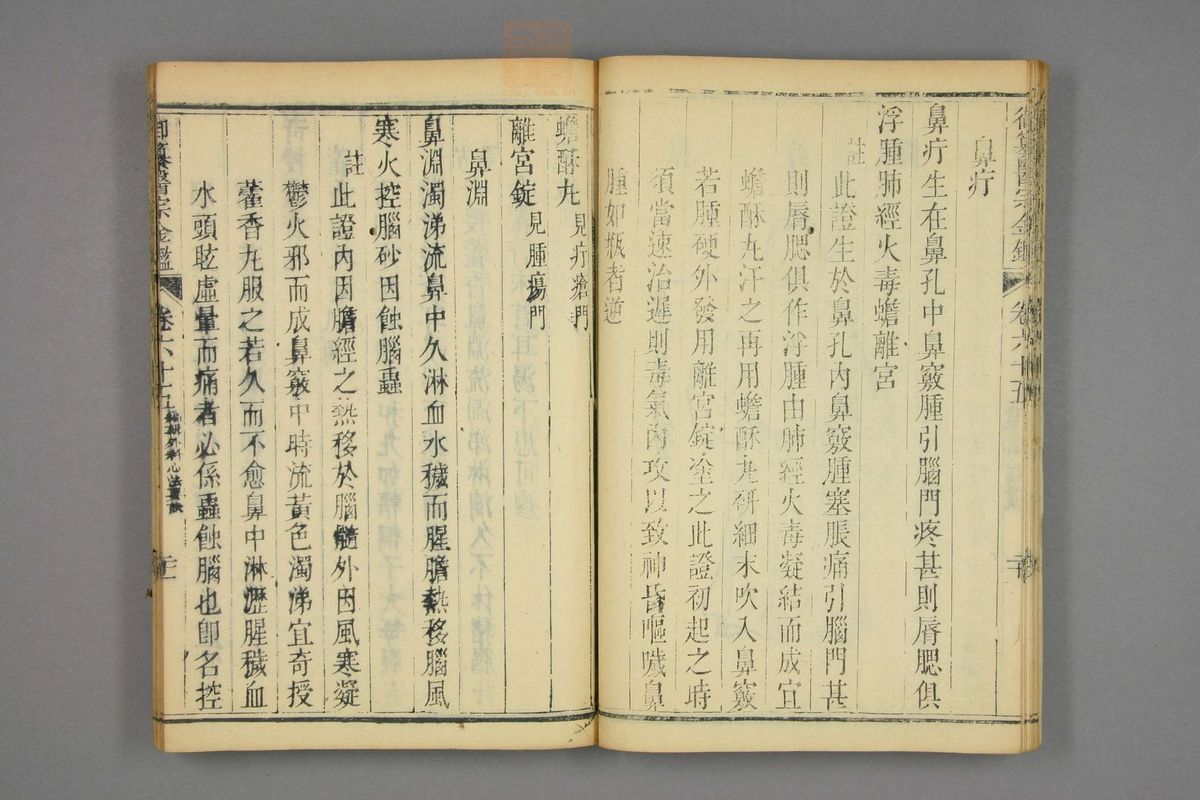 御纂醫宗金鑑 卷六十五
鼻疔
鼻疔生在鼻孔中鼻竅腫引腦門疼甚則唇腮俱
浮腫肺經火毒蟾離宮
註 此證生於鼻孔內鼻竅腫塞脹痛引腦門甚
則唇腮俱作浮腫由肺經火毒凝結而成宜
蟾酥丸汗之再用蟾酥丸研細末吹入鼻竅
若腫硬外發用離宮錠塗之此證初起之時
須當速治遲則毒氣內攻以致神昏嘔噦鼻
腫如瓶者逆
蟾酥丸 見疔瘡門
離宮錠 見腫瘍門
鼻淵
鼻淵濁涕流鼻中久淋血水穢而腥膽熱移腦風
寒火控腦砂因蝕腦蟲
註 此證內因膽經之熱移於腦髓外因風寒凝
鬱火邪而成鼻竅中時流黃色濁涕宜奇授
藿香丸服之若久而不愈鼻中淋瀝腥穢血
水頭眩虛暈而痛者必係蟲蝕腦也即名控
御纂醫宗金鑑 卷六十五 編輯外科心法要訣